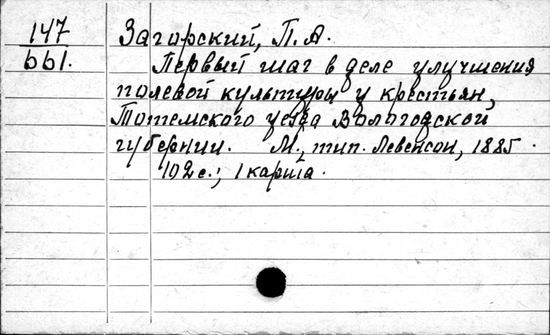 147
661.
Загорский, П. А.
Первый шаг в деле улучшения
полевой культуры у крестьян,
Тотемского уезда Вологодской
губернии. М., тип. Левенсон, 1885.
102 с.; 1 карта.